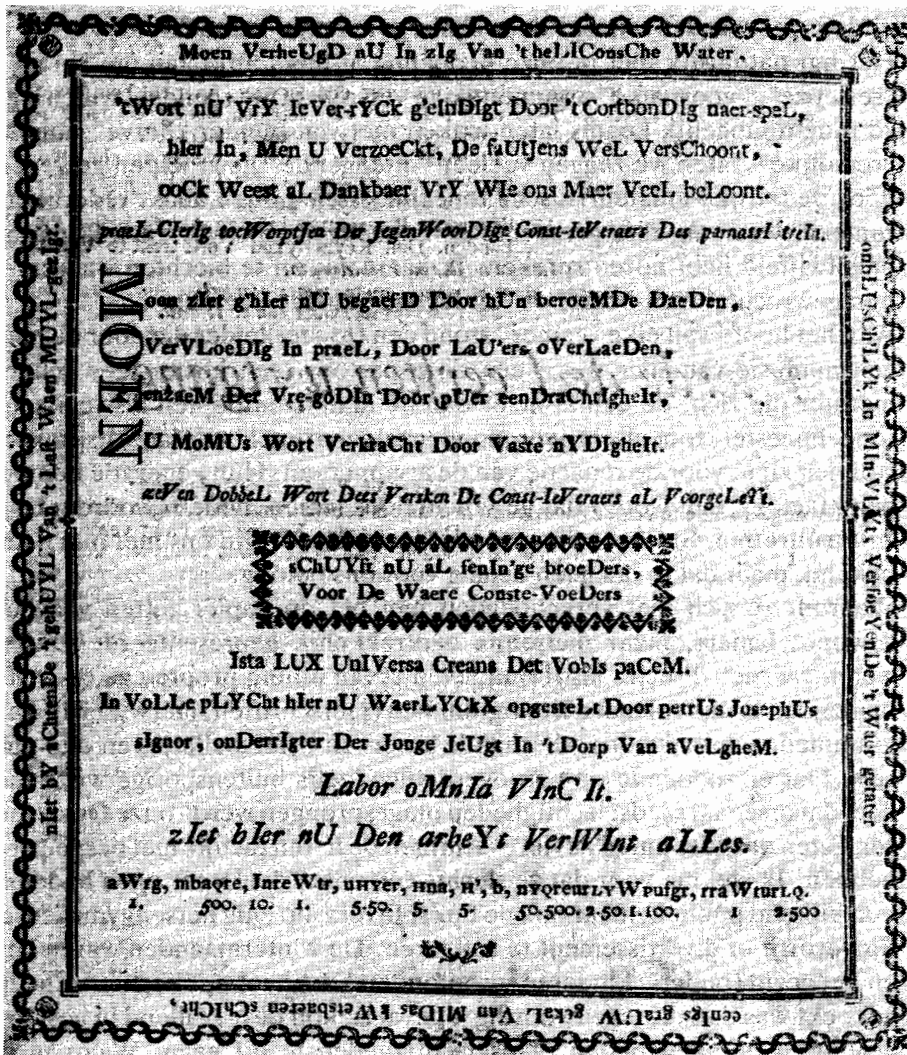 Moen VerheUgD nU In zIg Van 't heLIConsChe Water.
'tWort nU VrY IeVer-rYCk g'eInDIgt Door 't CortbonDIg naer-speL,
hIer In, Men U VerzoeCkt, De faUtJens WeL VersChoont,
ooCk Weest aL Dankbaer VrY WIe ons Maer VeeL beLoont.
praeL-CIerIg toeWorptJen Der JegenWoorDIge Const-IeVeraers Des parnassI treIn.
MOEN
oon zIet g'hIer nU begaefD Door hUn beroeMDe DaeDen,
VerVLoeDIg In praeL, Door LaU'ers oVerLaeDen,
enzaeM Der Vre-goDIn Door pUer eenDraChtIgheIt,
U MoMUs Wort VerkraCht Door Vaste nYDIgheIt.
zeVen DobbeL Wort Dees Versken De Const-IeVeraers aL VoorgeLeYt.
sChUYft nU aL fenIn'ge broeDers,
Voor De Waere Conste-VoeDers
Ista LUX UnIVersa Creans Det VobIs paCeM.
In VoLLe pLYCht hIer nU WaerLYCkX opgesteLt Door petrUs JosephUs
sIgnor, onDerrIgter Der Jonge JeUgt In 't Dorp Van aVeLgheM.
Labor oMnIa VInCIt.
zIet hIer nU Den arbeYt VerWInt aLLes.
aWrg, mbaQre, InreWtr, uHYer, Hna, H', b, nYQreurLYWPufgr, rraWturLQ.
1. 500. 10. 1. 5-50. 5. 5. 50.500. 2.50.1.100. 1 2.500
eenIgs graUW gekaL Van MIDas kWetsbaeren sChICht,
nIet bY aChtenDe 't gehUYL Van 't Last Waen MUYL-gezIgt.
onbLUsChLYk In MIn-VLAVs VersaeYenDe 't Water getater